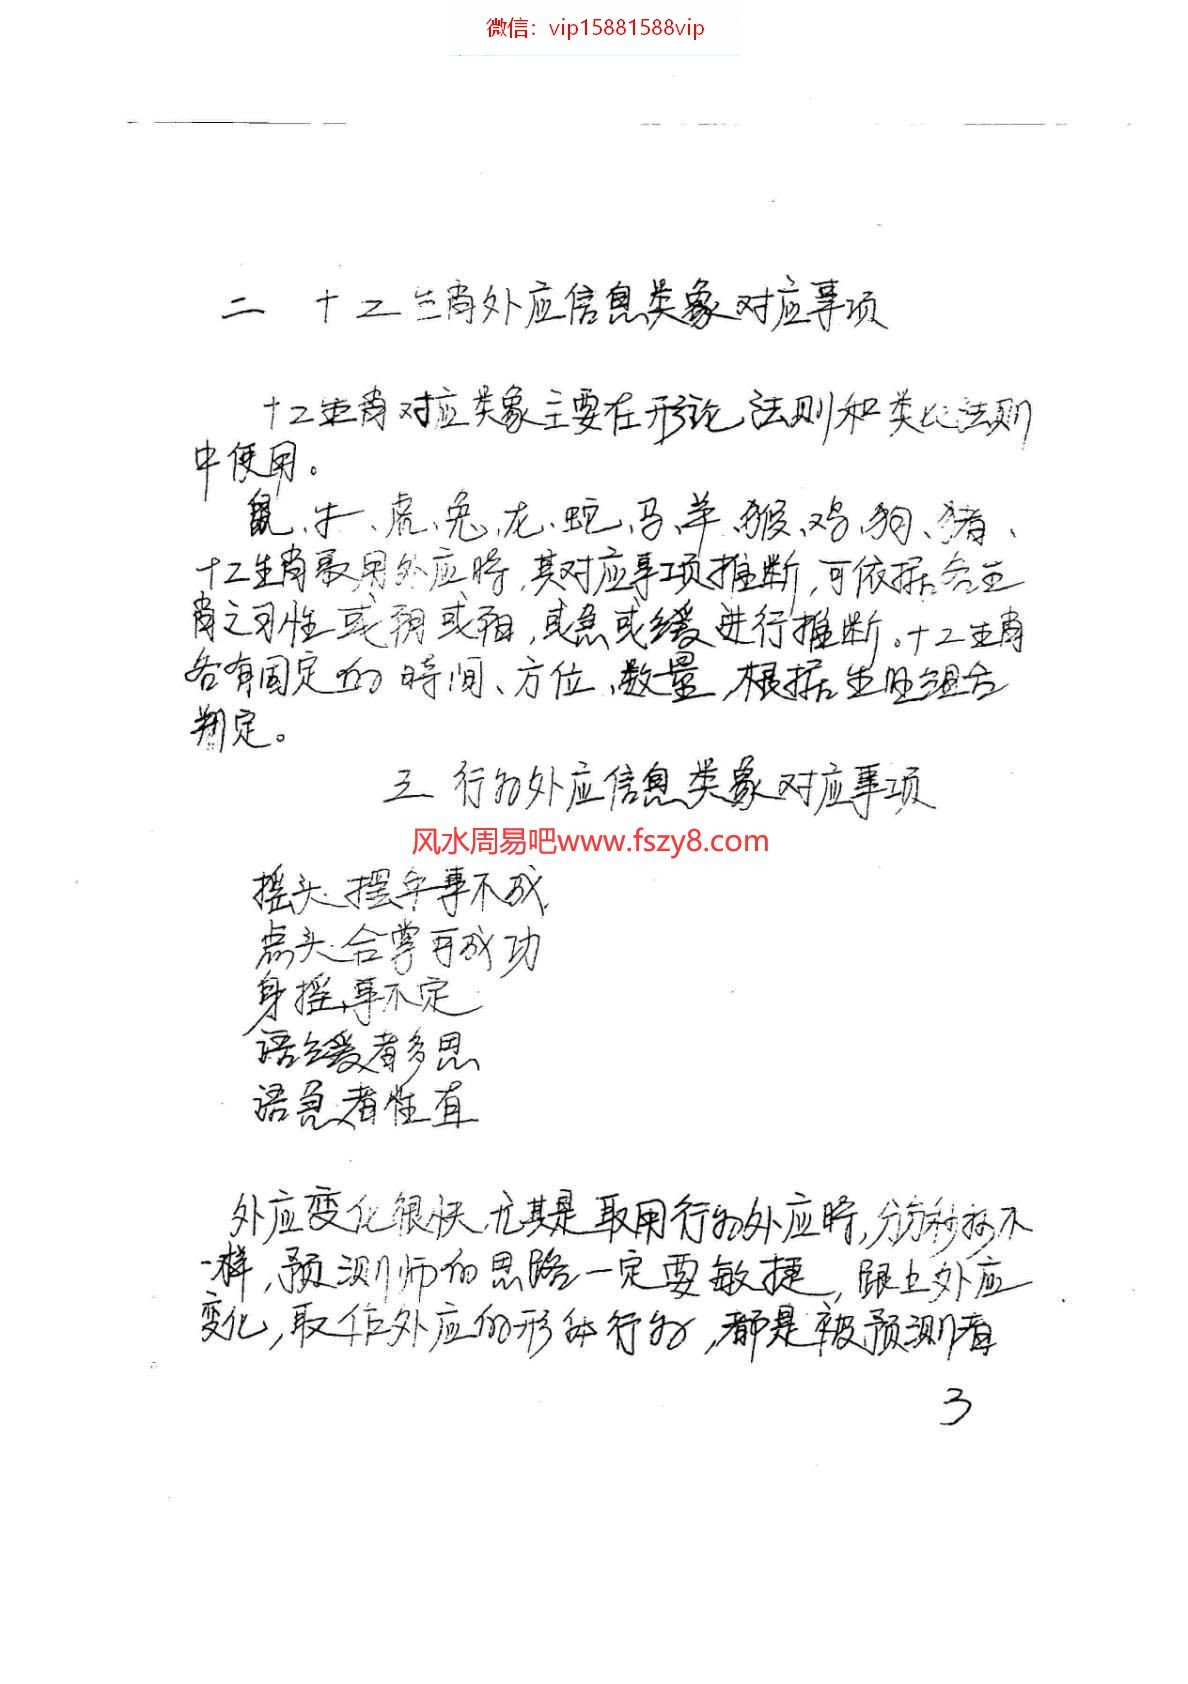 微信：vip15881588vip
二 十二生肖外应信息类象对应事项
十二生肖对应类象主要在形论法则和类比法则
中使用。
鼠、牛、虎、兔、龙、蛇、马、羊、猴、鸡、狗、猪、
十二生肖取用外应時，其对应事项推断，可依据各生
肖之习性或阴或阳，或急或缓进行推断。十二生肖
各有固定的時间、方位、数量，根据生旺组合
判定。
三 行为外应信息类象对应事项
风水周易吧www.fszy8.com
摇头、摆手事不成
点头、合掌可成功
身摇，事不定
语缓者多思
语急者性直
外应变化很快，尤其是取用行为外应時，分分秒秒不
一样，预测师的思路一定要敏捷，跟上外应
变化，取作外应的形体行为，都是被预测者
3